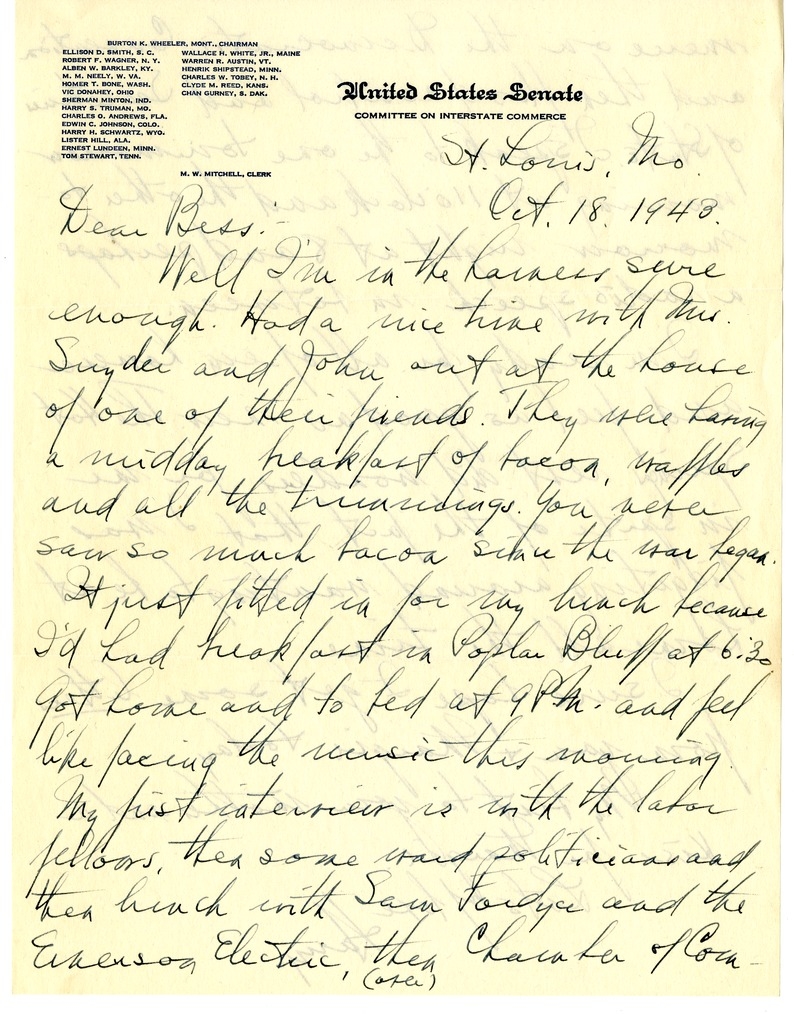 BURTON K. WHEELER, MONT., CHAIRMAN
ELLISON D. SMITH, S. C.
ROBERT F. WAGNER, N. Y.
ALBEN W. BARKLEY, KY.
M. M. NEELY, W. VA.
HOMER T. BONE, WASH.
VIC DONAHEY, OHIO
SHERMAN MINTON, IND.
HARRY S. TRUMAN, MO.
CHARLES O. ANDREWS, FLA.
EDWIN C. JOHNSON, COLO.
HARRY H. SCHWARTZ, WYO.
LISTER HILL, ALA.
ERNEST LUNDEEN, MINN.
TOM STEWART, TENN.
WALLACE H. WHITE, JR., MAINE
WARREN R. AUSTIN, VT.
HENRIK SHIPSTEAD, MINN.
CHARLES W. TOBEY, N. H.
CLYDE M. REED, KANS.
CHAN GURNEY, S. DAK.
M. W. MITCHELL, CLERK
United States Senate
COMMITTEE ON INTERSTATE COMMERCE
St. Louis, Mo.
Oct. 18. 1943.
Dear Bess:-
Well I'm in the harness sure
enough. Had a nice time with Mrs.
Snyder and John out at the house
of one of their friends. They were having
a midday breakfast of bacon, waffles
and all the trimmings. You never
saw so much bacon since the war began.
It just fitted in for my lunch because
I'd had breakfast in Poplar Bluff at 6:30
Got home and to bed at 9 P.M. and feel
like facing the music this morning.
My first interview is with the labor
fellows, then some ward politicians and
then lunch with Sam Fordyce and the
Emerson Electric, then Chamber of Com-
(over)